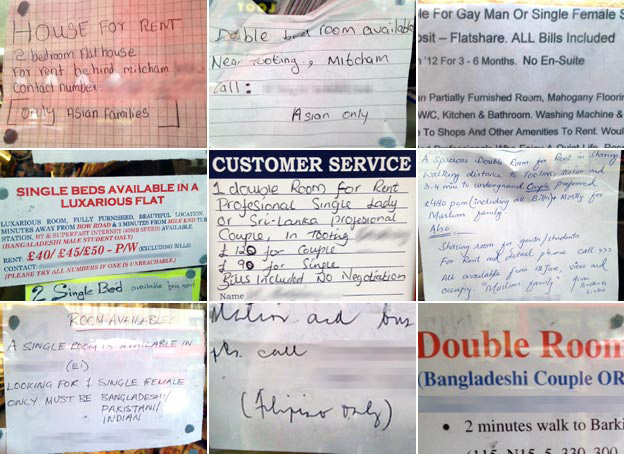 HOUSE FOR RENT
2 bedroom flat house
For rent behind mitcham
Contact number
Only Asian Families
Double bed room available
Near Tooting, Mitcham
Call:
Asian only
le For Gay Man Or Single Female S
osit – Flatshare. ALL Bills Included
n '12 For 3 - 6 Months. No En-Suite
n Partially Furnished Room, Mahogany Floorin
W/C, Kitchen & Bathroom. Washing Machine &
To Shops And Other Amenities To Rent. Would
SINGLE BEDS AVAILABLE IN A
LUXARIOUS FLAT
LUXARIOUS ROOM, FULLY FURNISHED, BEAUTIFUL LOCATION,
MINUTES AWAY FROM BOW ROAD & 3 MINUTES FROM MILE END TUBE
STATION, BT & SUPERFAST INTERNET (40MB SPEED) AVAILABLE.
(BANGLADESHI MALE STUDENT ONLY)
RENT: £40/ £45/£50 - P/W (EXCLUDING BILLS)
CONTACT:
(PLEASE TRY ALL NUMBERS IF ONE IS UNREACHABLE.)
2 Single Bed available for rent
CUSTOMER SERVICE
1 double Room for Rent
Profesional Single Lady
or Sri-Lanka profesional
Couple, in Tooting
£120 for Couple
£90 for Single
Bills Included No Negotiation
Name
A Spacious Double Room for Rent in Sharing
walking distance to Tooting station and
3-4 min to underground Couple preferred
£480 pcm (including all Bills) for Mostly for
Muslim family.
Also
Sharing room for gents/students
For Rent and detail please call >>>
All available from 12 Jan, view and
occupy. "Muslim family"
ROOM AVAILABLE
A SINGLE ROOM IS AVAILABLE IN
(E1)
LOOKING FOR 1 SINGLE FEMALE
ONLY MUST BE BANGLADESHI/
PAKISTANI/
INDIAN
Station and bus
pls. call
(Filipino only)
Double Room
(Bangladeshi Couple OR
• 2 minutes walk to Barki